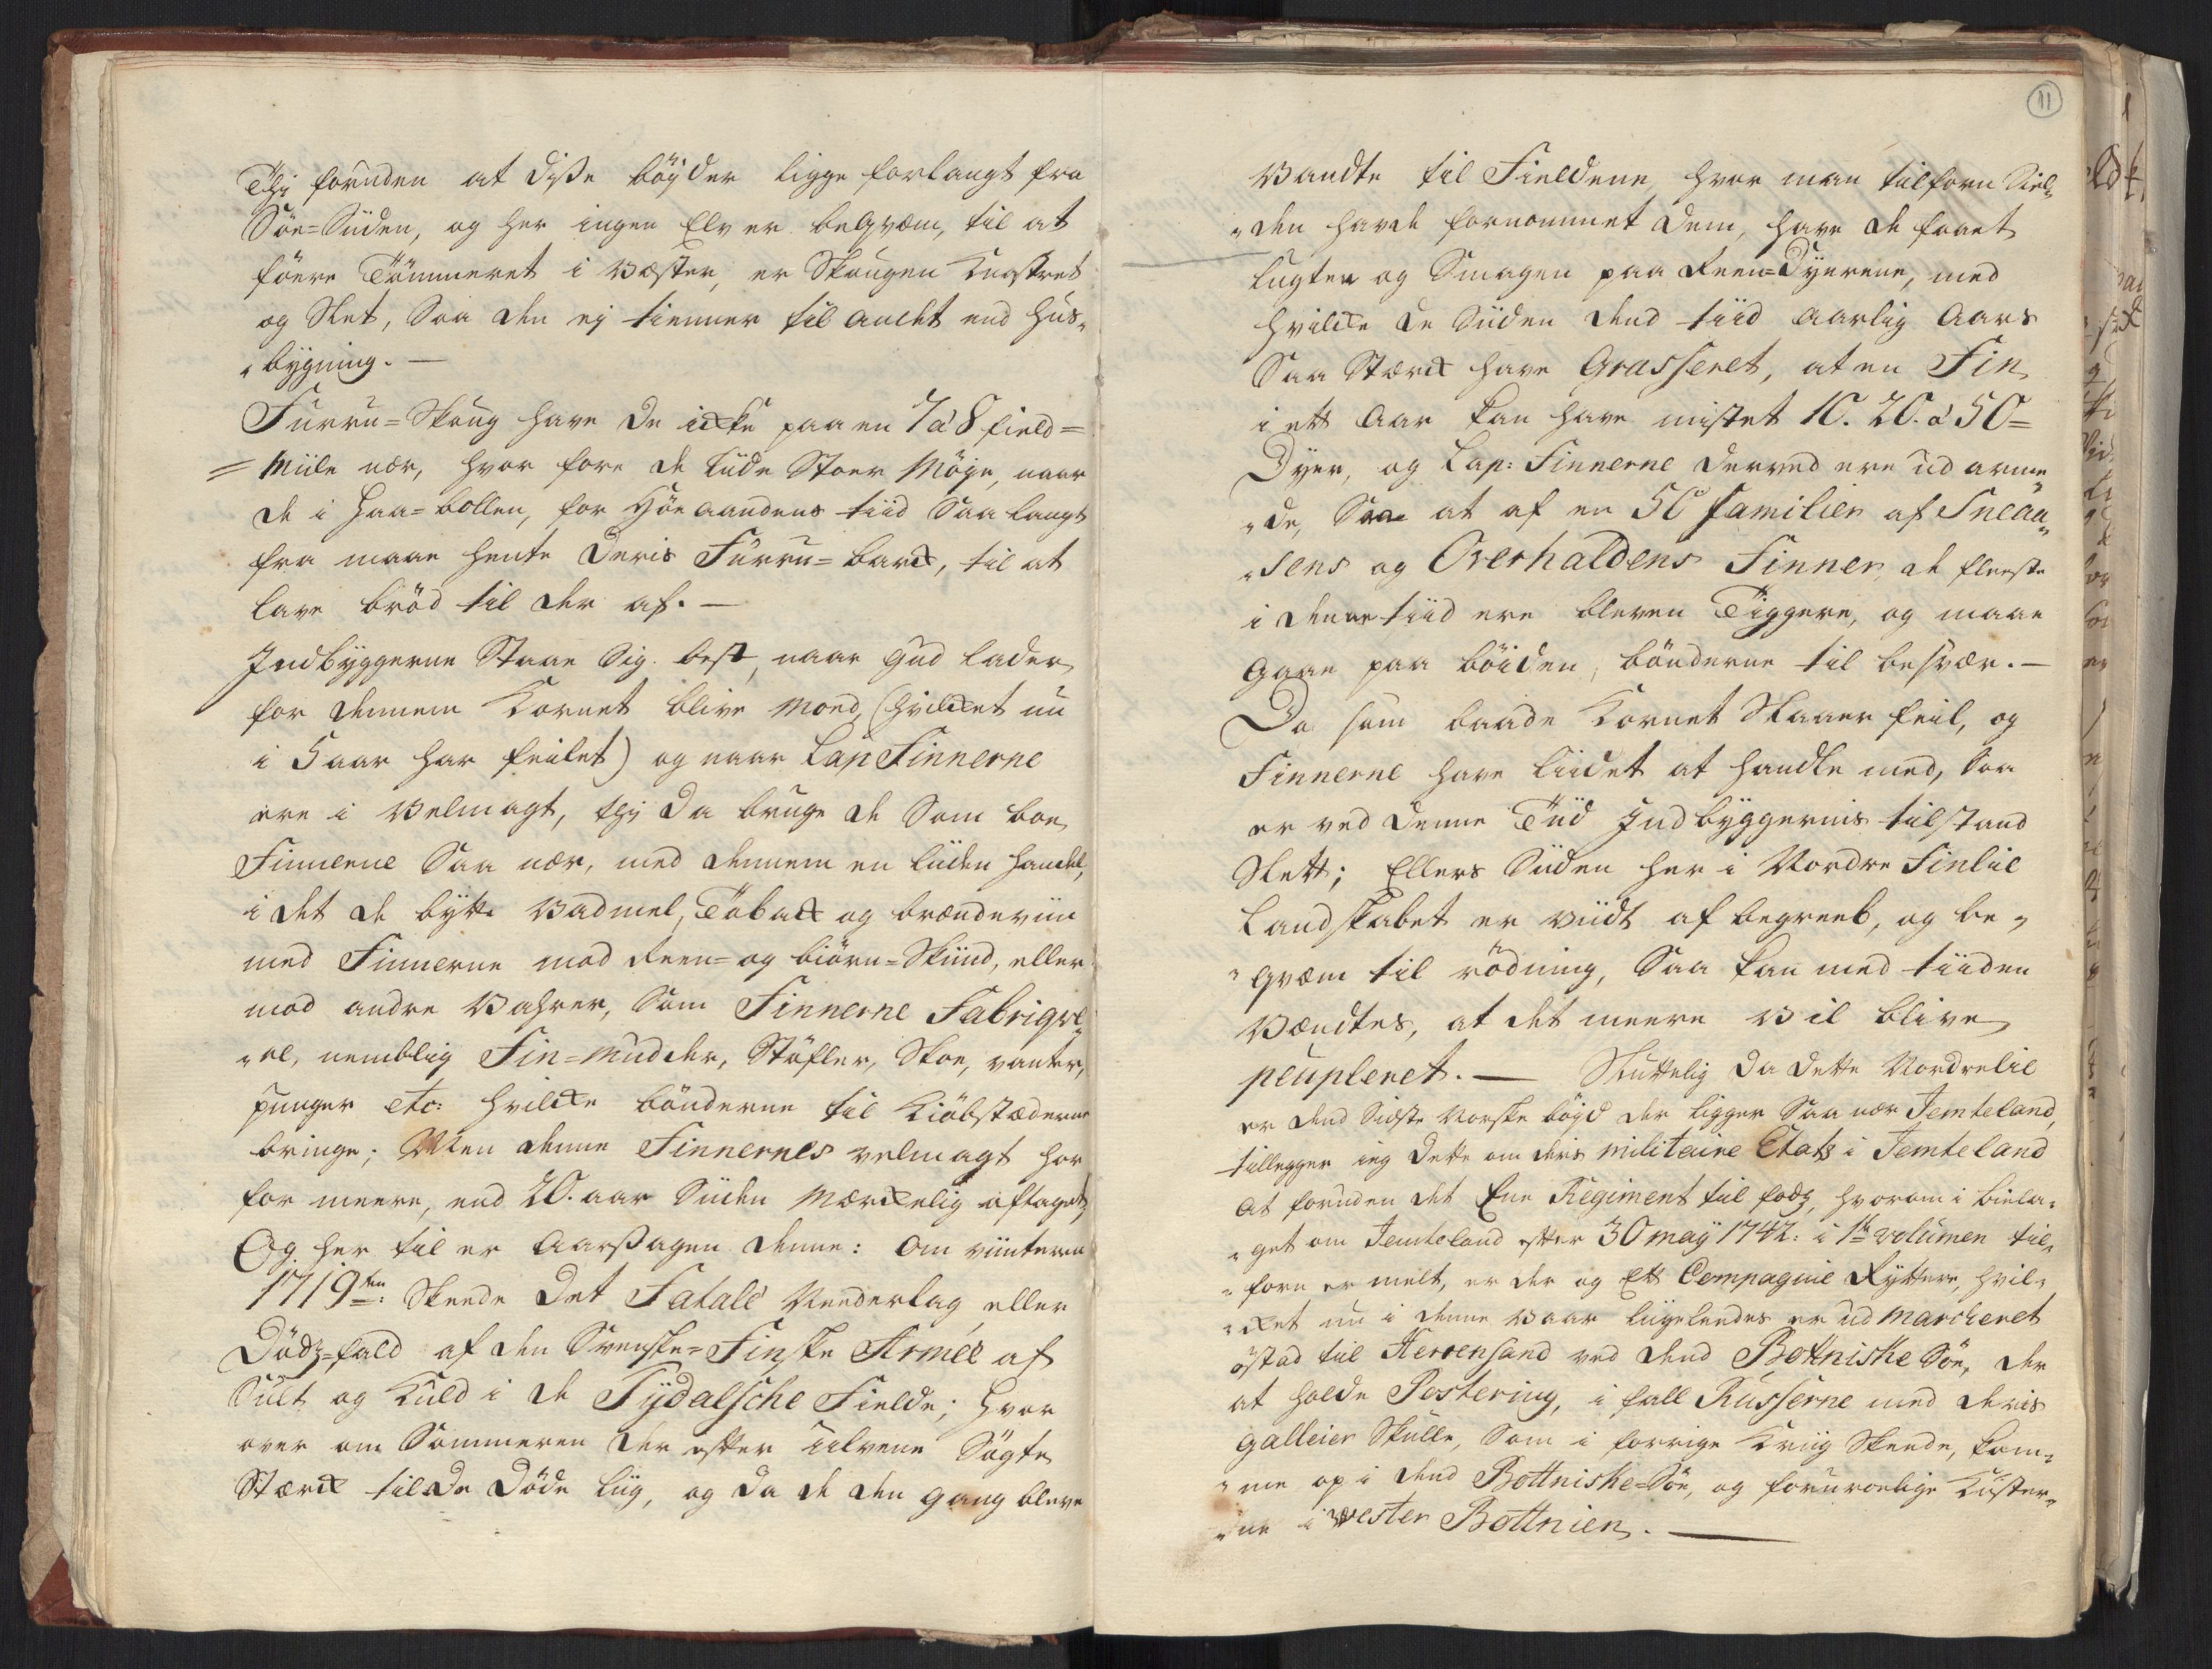 Thj foruden at diße böyder ligge forlangt fra
Söe=Siiden, og her ingen Elv er beqvæm, til at
föere Tömmeret i Væster, er Skougen knastret
og Slet, Saa den ej tienner til andet end huus„
„bygning. —
Furru=Skoug have de icke paa en 7 à 8 field=
=Miile nær, hvor fore de liide Stoer Möye, naar
de i Haa=bollen, for Höe aandens tiid Saa langt
fra maae hente deris Furru=barck, til at
lave bröd til der af. —
Indbyggerne Staae Sig best, naar Gud lader
for dennem Kornet blive moed, (hvilcket nu
i 5 aar har feilet) og naar Lap Finnerne
ere i Velmagt, thj da bruge de Som boe
Finnerne Saa nær, med dennem en liiden handel,
i det de bytte Vadmel, Toback og brændeviin
med Finnerne mod Reen= og biörn=Skiind, eller
mod andre Vahrer, Som Finnerne Fabriqve„
„re, nemblig Fin=mudder, Stöfler, Skoe, vanter,
punger etc: hvilcke bönderne til Kiöbstæderne
bringe; Men denne Finnernes velmagt har
for meere, end 20. aar Siiden mærckelig aftaget,
Og her til er Aarßagen denne: Om viinteren
1719ten: Skeede det Fatale Neederlag eller
Dödz=fald af den Svenske=Finske Armée af
Sult og Kuld i de Tydalsche Fielde; hvor
over om Sommeren der efter Ulvene Sögte
Stærck til de döde liig, og da de den gang bleve
11
Vandte til Fieldene, hvor man tilforn Siel„
„den havde fornommet dem, have de faaet
lugten og Smagen paa Reen=Dyerene, med
hvilcke de Siiden dend tiid aarlig Aars
Saa Stærck have Grasseret, at en Fin
i ett Aar kan have mistet 10. 20. à 50=
Dyer, og Lap: Finnerne derved ere ud arme„
„de, Saa at af en 50 familier af Sneaa„
„sens og Overhaldens Finner, de fleeste
i denne tiid ere bleven Tiggere, og maae
gaae paa böiden, bönderne til besvær. —
Da som baade Kornet Slaaer feil, og
Finnerne have liidet at handle med, Saa
er ved denne Tiid Indbyggernis tilstand
Slett; Ellers Siiden her i Nordre Finliie
Landskabet er viidt af begreeb, og be„
„qvæm til rödning, Saa kan med tiiden
Vændtes, at det meere Vil blive
peupleret. — Sluttelig da dette Nordrelie
er dend Sidste Norske böyd der ligger Saa nær Jemteland,
tillegger ieg dette om deris militaire Etatz i Jemteland
At foruden det Ene Regiment til fodz, hvorom i biela„
„get om Jemteland efter 30 may 1742: i 1te volumen til„
„forn er melt, er der og Ett Compagnie Ryttere, hvil„
„cket nu i denne Vaar liigeleedes er ud marcheret
östad til Hernensand ved dend Bottniske Söe, der
at holde Postering, i fall Russerne med deris
Galleier Skulle, Som i forrige Kriig Skeede, kom„
„me op i dend Bottniske=Söe, og foruroelige Kuster„
„ne i Vester Bottnien. —